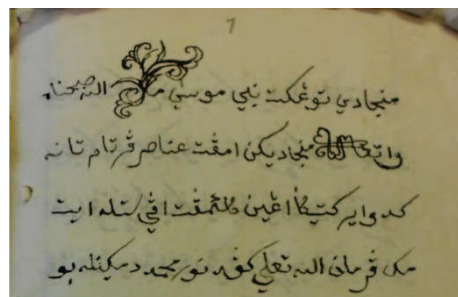 منجادي توڠکت نبي موسي مک الله سبحانه
وتعالى منجاديکن امڤت عناصر ڤرتام تانه
کدوا اير کتيݢ اڠين کأمڤت اڤي ستله ايت
مک فرمان الله تعالي کڤد نور محمد دمکينله بو